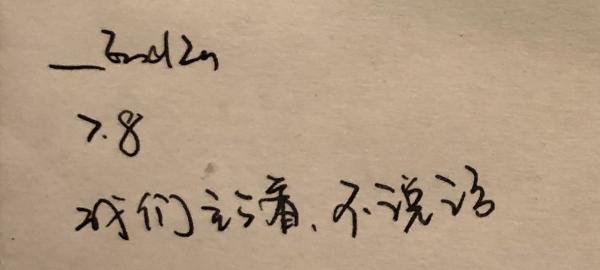 7.8
我们立着、不说话